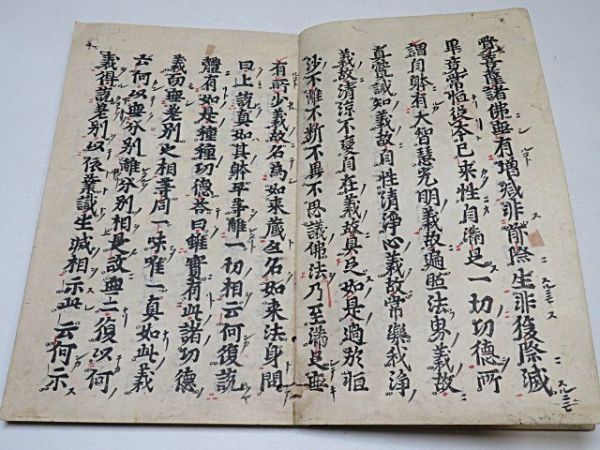 覺菩薩諸佛無有增減非前際生非後際滅
畢竟常恒從本已來性自滿足一切功德所
謂自躰有大智慧光明義故遍照法界義故
真實識知義故自性清淨心義故常樂我淨
義故清涼不變自在義故具足如是過於恒
沙不離不断不異不思議佛法乃至滿足無
有所少義故名為如来藏亦名如来法身問
曰上說真如其躰平等離一切相云何復說
體有如是種種功德荅曰雖實有此諸功德
義而無差別之相等同一味唯一真如此義
云何以無分別離分別相是故無二復以何
義得說差別以依業識生滅相示此云何示